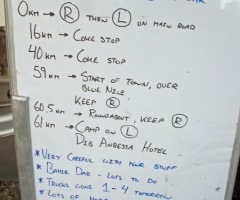 0km → R THEN L ON MAIN ROAD
16km → COKE STOP
40km → COKE STOP
59km → START OF TOWN, OVER
BLUE NILE
KEEP R
60.5km → ROUNDABOUT, KEEP R
61km → CAMP ON L
DIB ANBESSA HOTEL
* VERY CAREFUL WITH YOUR STUFF
* BAHIR DAR - LOTS TO DO
* TRUCKS CLINIC 1-4 TOMORROW
* LOTS OF